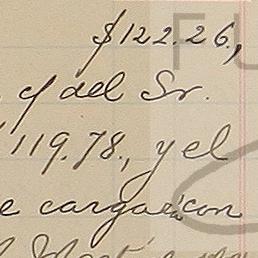 $122.26,
c/ del Sr.
119.78., y el
e cargará con